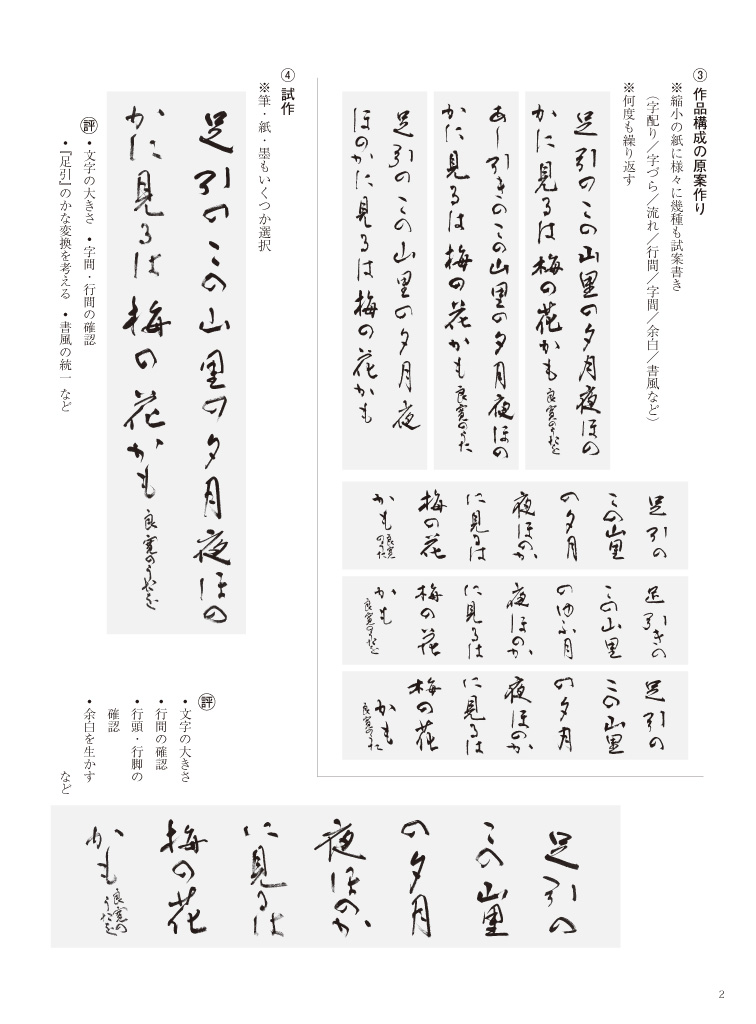 ③ 作品構成の原案作り
※縮小の紙に様々に幾種も試案書き
（字配り／字づら／流れ／行間／字間／余白／書風など）
※何度も繰り返す
足引のこの山里の夕月夜ほの
かに見るは梅の花かも
良寛のうたを
あし引きのこの山里の夕月夜ほの
かに見るは梅の花かも
良寛のうた
足引のこの山里の夕月夜
ほのかに見るは梅の花かも
足引の
この山里
の夕月
夜ほのか
に見るは
梅の花
かも
良寛
のうた
足引きの
この山里
のゆふ月
夜ほのか
に見るは
梅の花
かも
良寛のうたを
足引の
この山里
の夕月
夜ほのか
に見るは
梅の花
かも
良寛のうた
④ 試作
※筆・紙・墨もいくつか選択
足引のこの山里の夕月夜ほの
かに見るは梅の花かも
良寛のうたを
評
•文字の大きさ •字間・行間の確認
•『足引』のかな変換を考える •書風の統一 など
評
•文字の大きさ
•行間の確認
•行頭・行脚の
確認
•余白を生かす
など
足引の
この山里
の夕月
夜ほのか
に見るは
梅の花
かも
良寛の
うたを
2